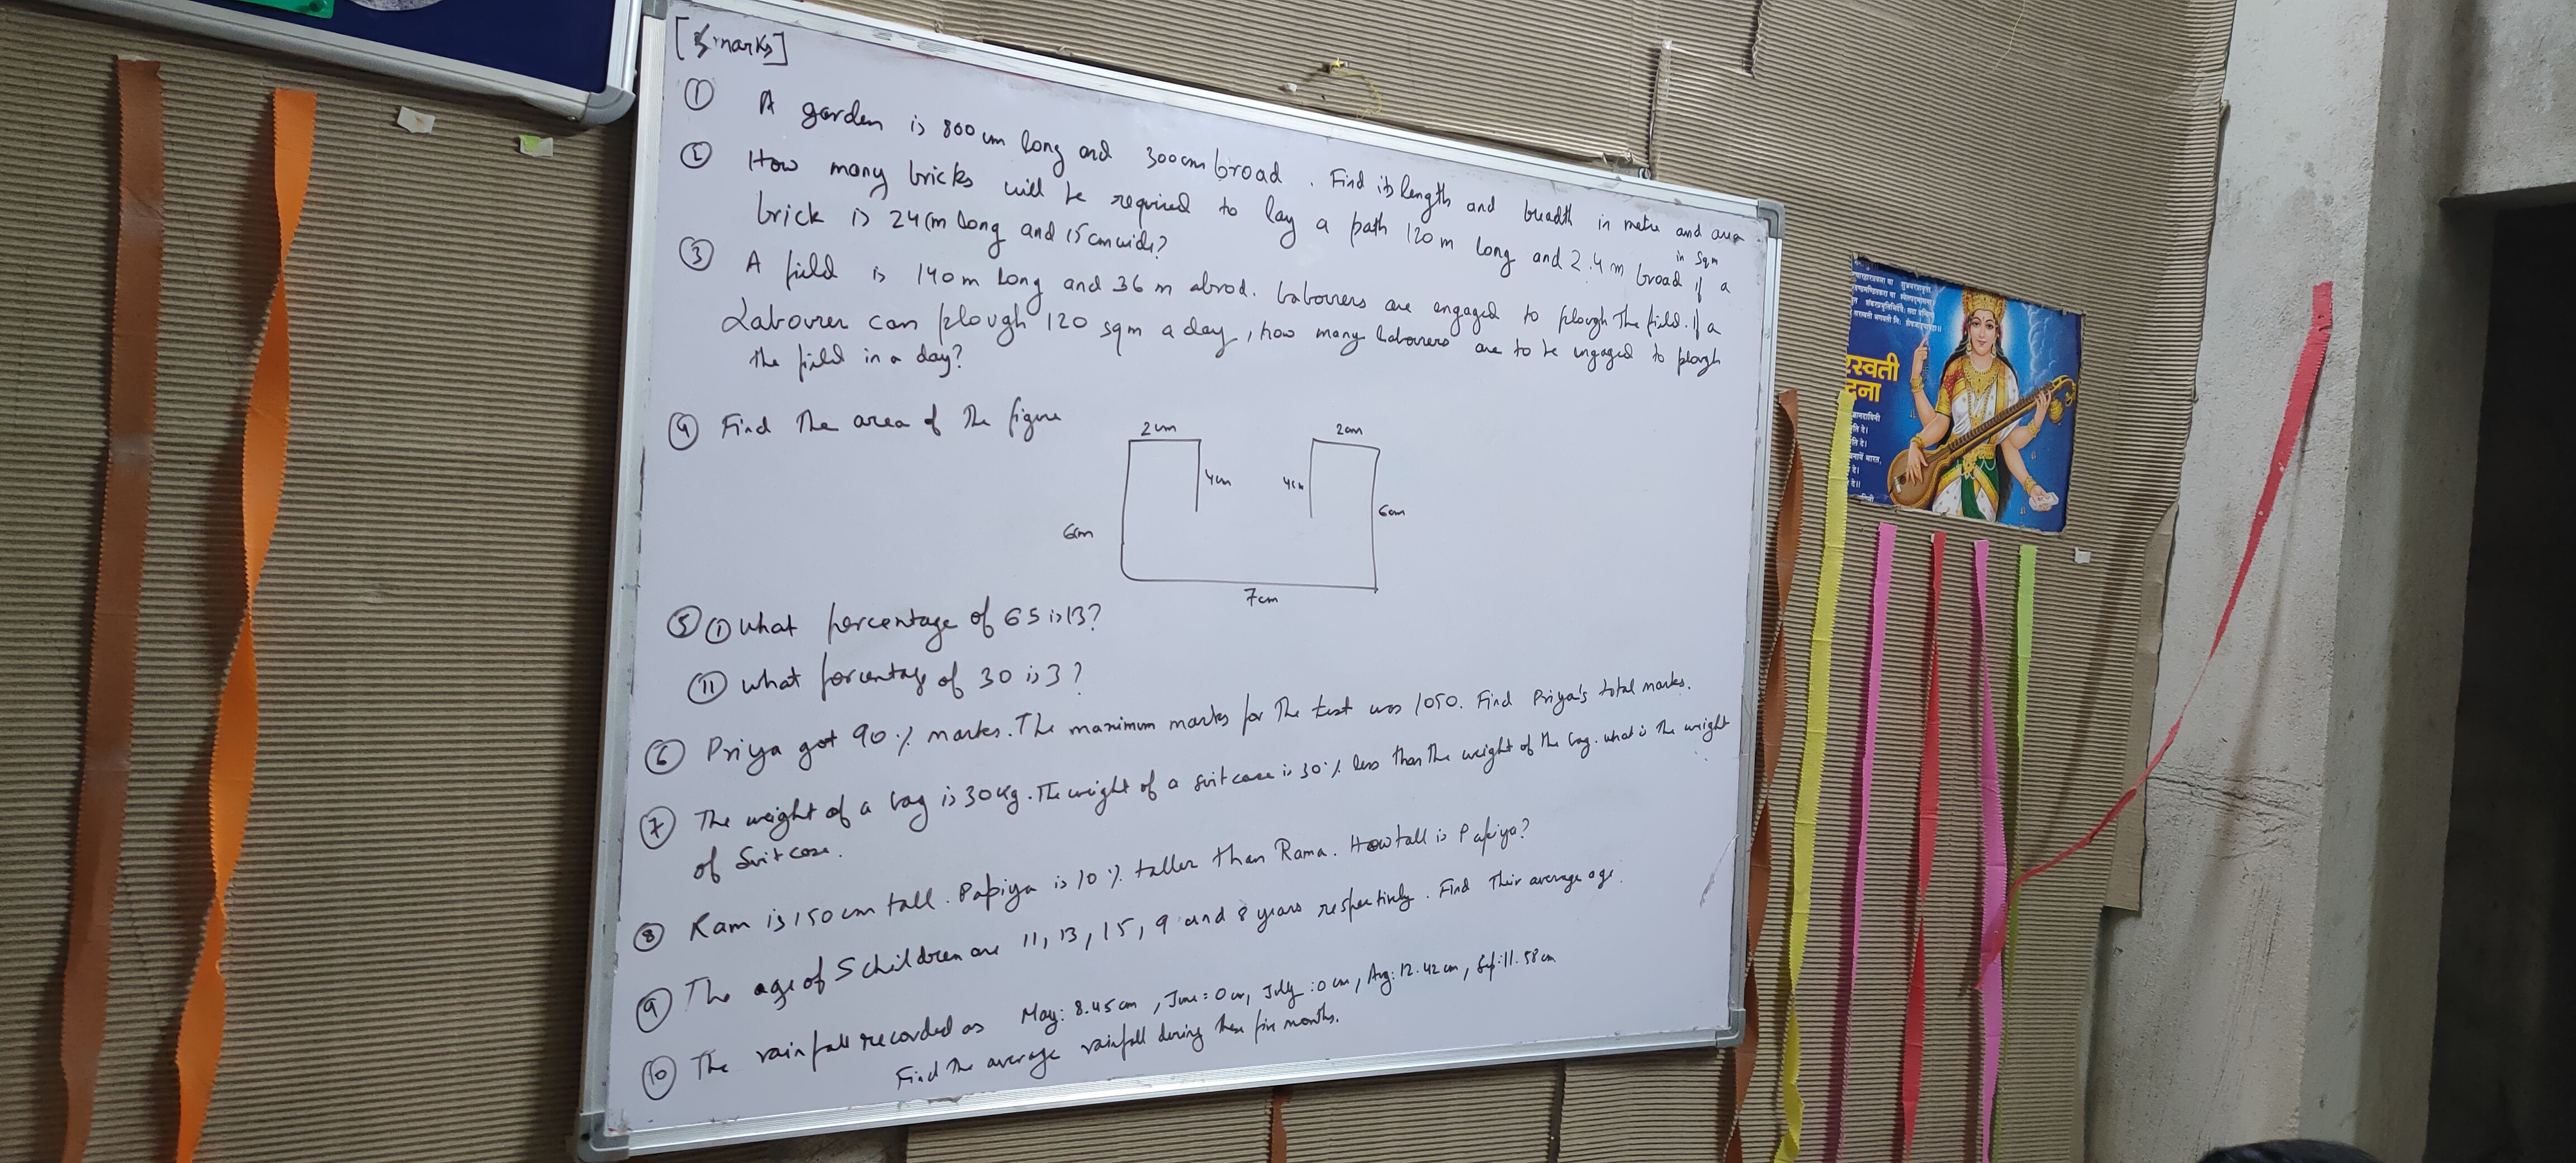 [5 marks]
① A garden is 800 cm long and 300 cm broad. Find its length and breadth in metre and area
in sqm
② How many bricks will be required to lay a path 120 m long and 2.4 m broad if a
brick is 24 cm long and 15 cm wide?
③ A field is 140 m long and 36 m abrod. Labourers are engaged to plough the field. If a
Labourer can plough 120 sqm a day, how many labourers are to be engaged to plough
the field in a day?
④ Find the area of the figure
2 cm
2 cm
4 cm
4 cm
6 cm
6 cm
7 cm
⑤ ① What percentage of 65 is 13?
⑪ What percentage of 30 is 3?
⑥ Priya got 90 % marks. The maximum marks for the test was 1050. Find Priya's total marks.
⑦ The weight of a bag is 30 kg. The weight of a suitcase is 30 % less than the weight of the bag. what is the weight
of suitcase.
⑧ Ram is 150 cm tall. Papiya is 10 % taller than Rama. How tall is Papiya?
⑨ The age of 5 children are 11, 13, 15, 9 and 8 years respectively. Find their average age.
⑩ The rainfall recorded as May: 8.45 cm, June: 0 cm, July: 0 cm, Aug: 12.42 cm, Sep: 11.58 cm
Find the average rainfall during these five months.
रस्वती
दना